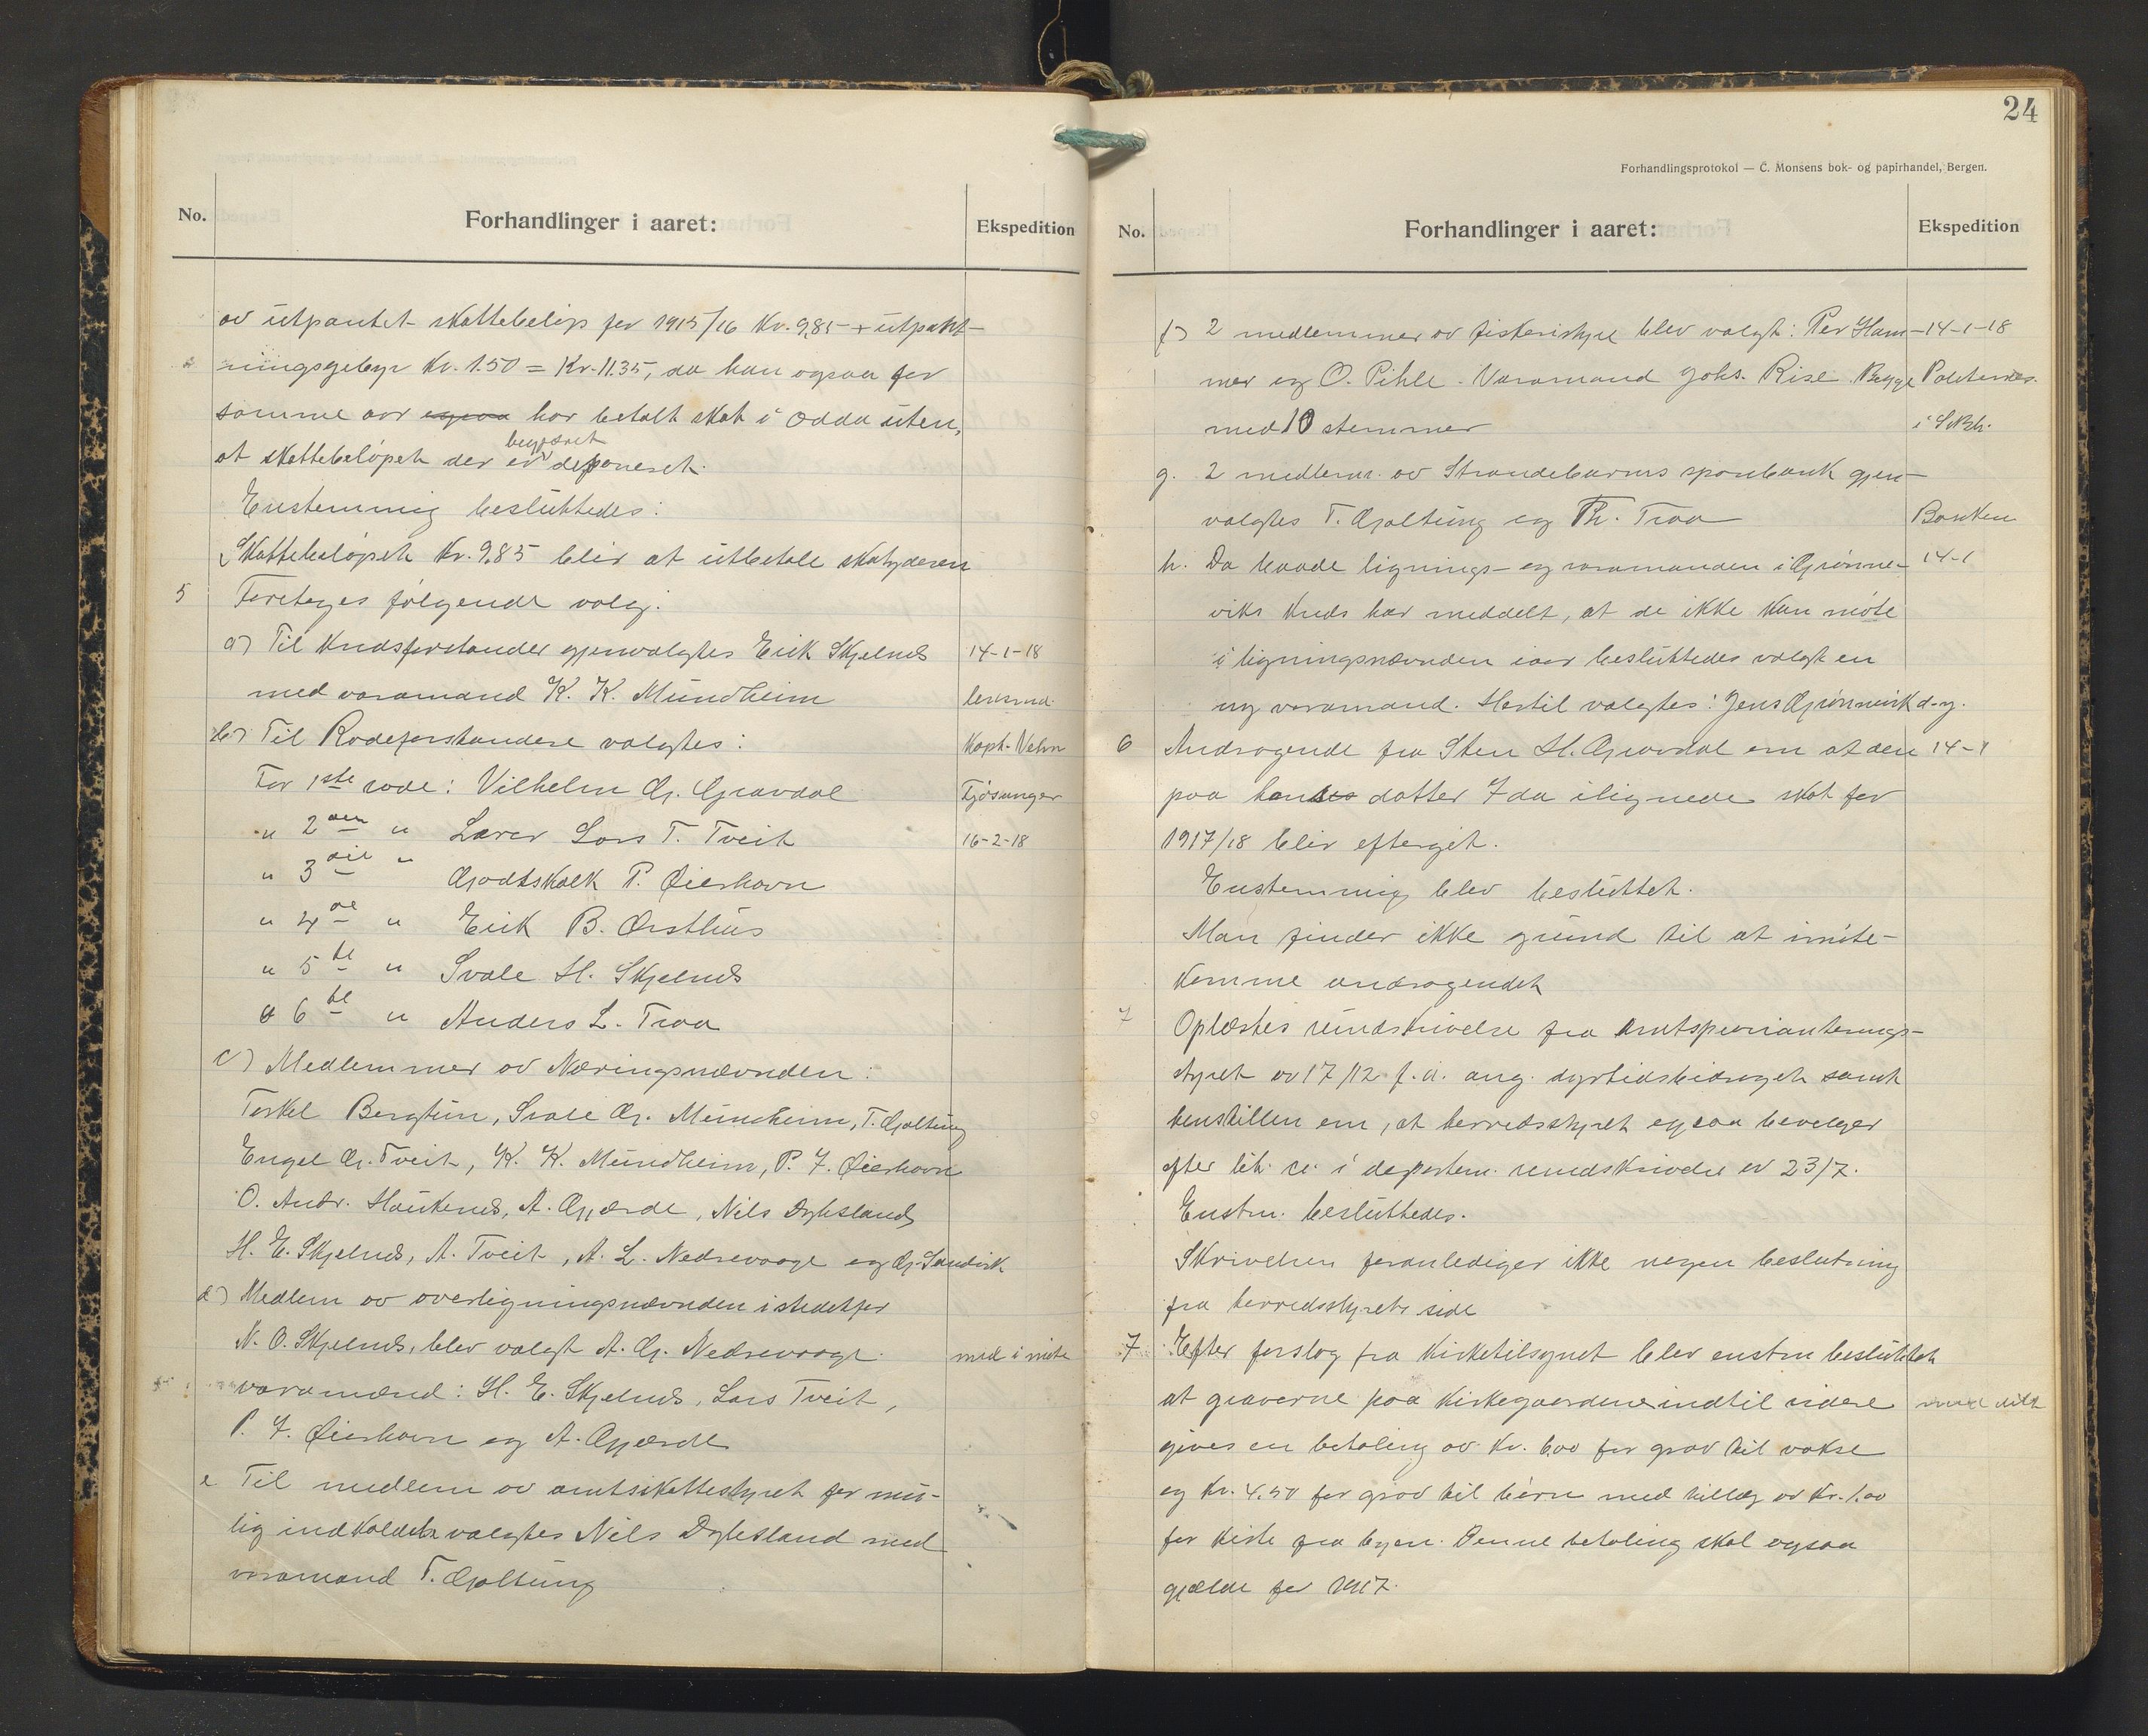 No.
Forhandlinger i aaret:
Ekspedition
av utpantet skattebeløp for 1915/16 Kr. 9,85 + utpant-
ningsgebyr Kr. 1.50 = Kr. 11.35, da han ogsaa for
samme aar ogsaa har betalt skat i Odda uten,
at skattebeløpet der er begjæret deponeret.
Enstemmig besluttedes:
Skattebeløpet Kr. 9,85 blir at utbetale skatyderen
5 Foretoges følgende valg:
a) Til Kredsforstander gjenvalgtes Erik Skjelnes 14-1-18
med varamand K. K. Mundheim lensmd.
b) Til Rodeforstandere valgtes: Kapt. Vehn
For 1ste rode: Vilhelm G. Gravdal Fjøsanger
" 2den " Lærer Lars T. Tveit 16-2-18
" 3die " Godtskalk P. Øierhavn
" 4de " Erik B. Ørsthus
" 5te " Svale H. Skjelnes
" 6te " Anders L. Traa
c) Medlemmer av Næringsnævnden:
Torkel Bergtun, Svale G. Mundheim, T. Gjaltung
Engel G. Tveit, K. K. Mundheim, P. J. Øierhavn
O. Andr. Haukenes, A. Gjærde, Nils Dybsland,
H. E. Skjelnes, A. Tveit, A. L. Nedrevaage og G. Sandvik
d) Medlem av overligningsnævnden istedetfor
N. O. Skjelnes, blev valgt A. G. Nedrevaage. med i møte
varamænd: H. E. Skjelnes, Lars Tveit,
P. J. Øierhavn og A. Gjærde
e Til medlem av amtsskattestyret for mu-
lig indkaldelse valgtes Nils Dybsland med
varamand T. Gjaltung
24
Forhandlingsprotokol — C. Monsens bok- og papirhandel, Bergen.
No.
Forhandlinger i aaret:
Ekspedition
f) 2 medlemmer av fiskeristyre blev valgt: Per Ham- 14-1-18
mer og O. Pihle. Varamand Johs. Rise. Begge
med 10 stemmer
g. 2 medlem. av Strandebarms sparebank gjen-
valgtes T. Gjaltung og Th. Traa Banken
h. Da baade lignings- og varamanden i Grønne- 14-1
viks Kreds har meddelt, at de ikke kan møte
i ligningsnævnden iaar besluttedes valgt en
ny varamand. Hertil valgtes: Jens Grønnevik
6 Andragende fra Sten H. Gravdal om at den 14-1
paa hans datter Ida ilignede skat for
1917/18 blir eftergit.
Enstemmig blev besluttet.
Man finder ikke grund til at imøte-
komme andragendet
7 Oplæstes rundskrivelse fra Amtsprovianterings-
styret av 17/12 f.a. ang. dyrtidsbidraget samt
henstillen om, at herredsstyret ogsaa bevilger
efter lit. i departem. rundskrivelse av 23/7.
Enstm. besluttedes.
Skrivelsen foranlediger ikke nogen beslutning
fra herredsstyrets side
7 Efter forslag fra Kirketilsynet blev enstm besluttet
at graverne paa Kirkegaardene indtil videre
gives en betaling av Kr. 6.00 for grav til vokse
og Kr. 4.50 for grav til børn med tillæg av Kr. 1.00
for kiste fra byen. Denne betaling skal ogsaa
gjælde for 1917.